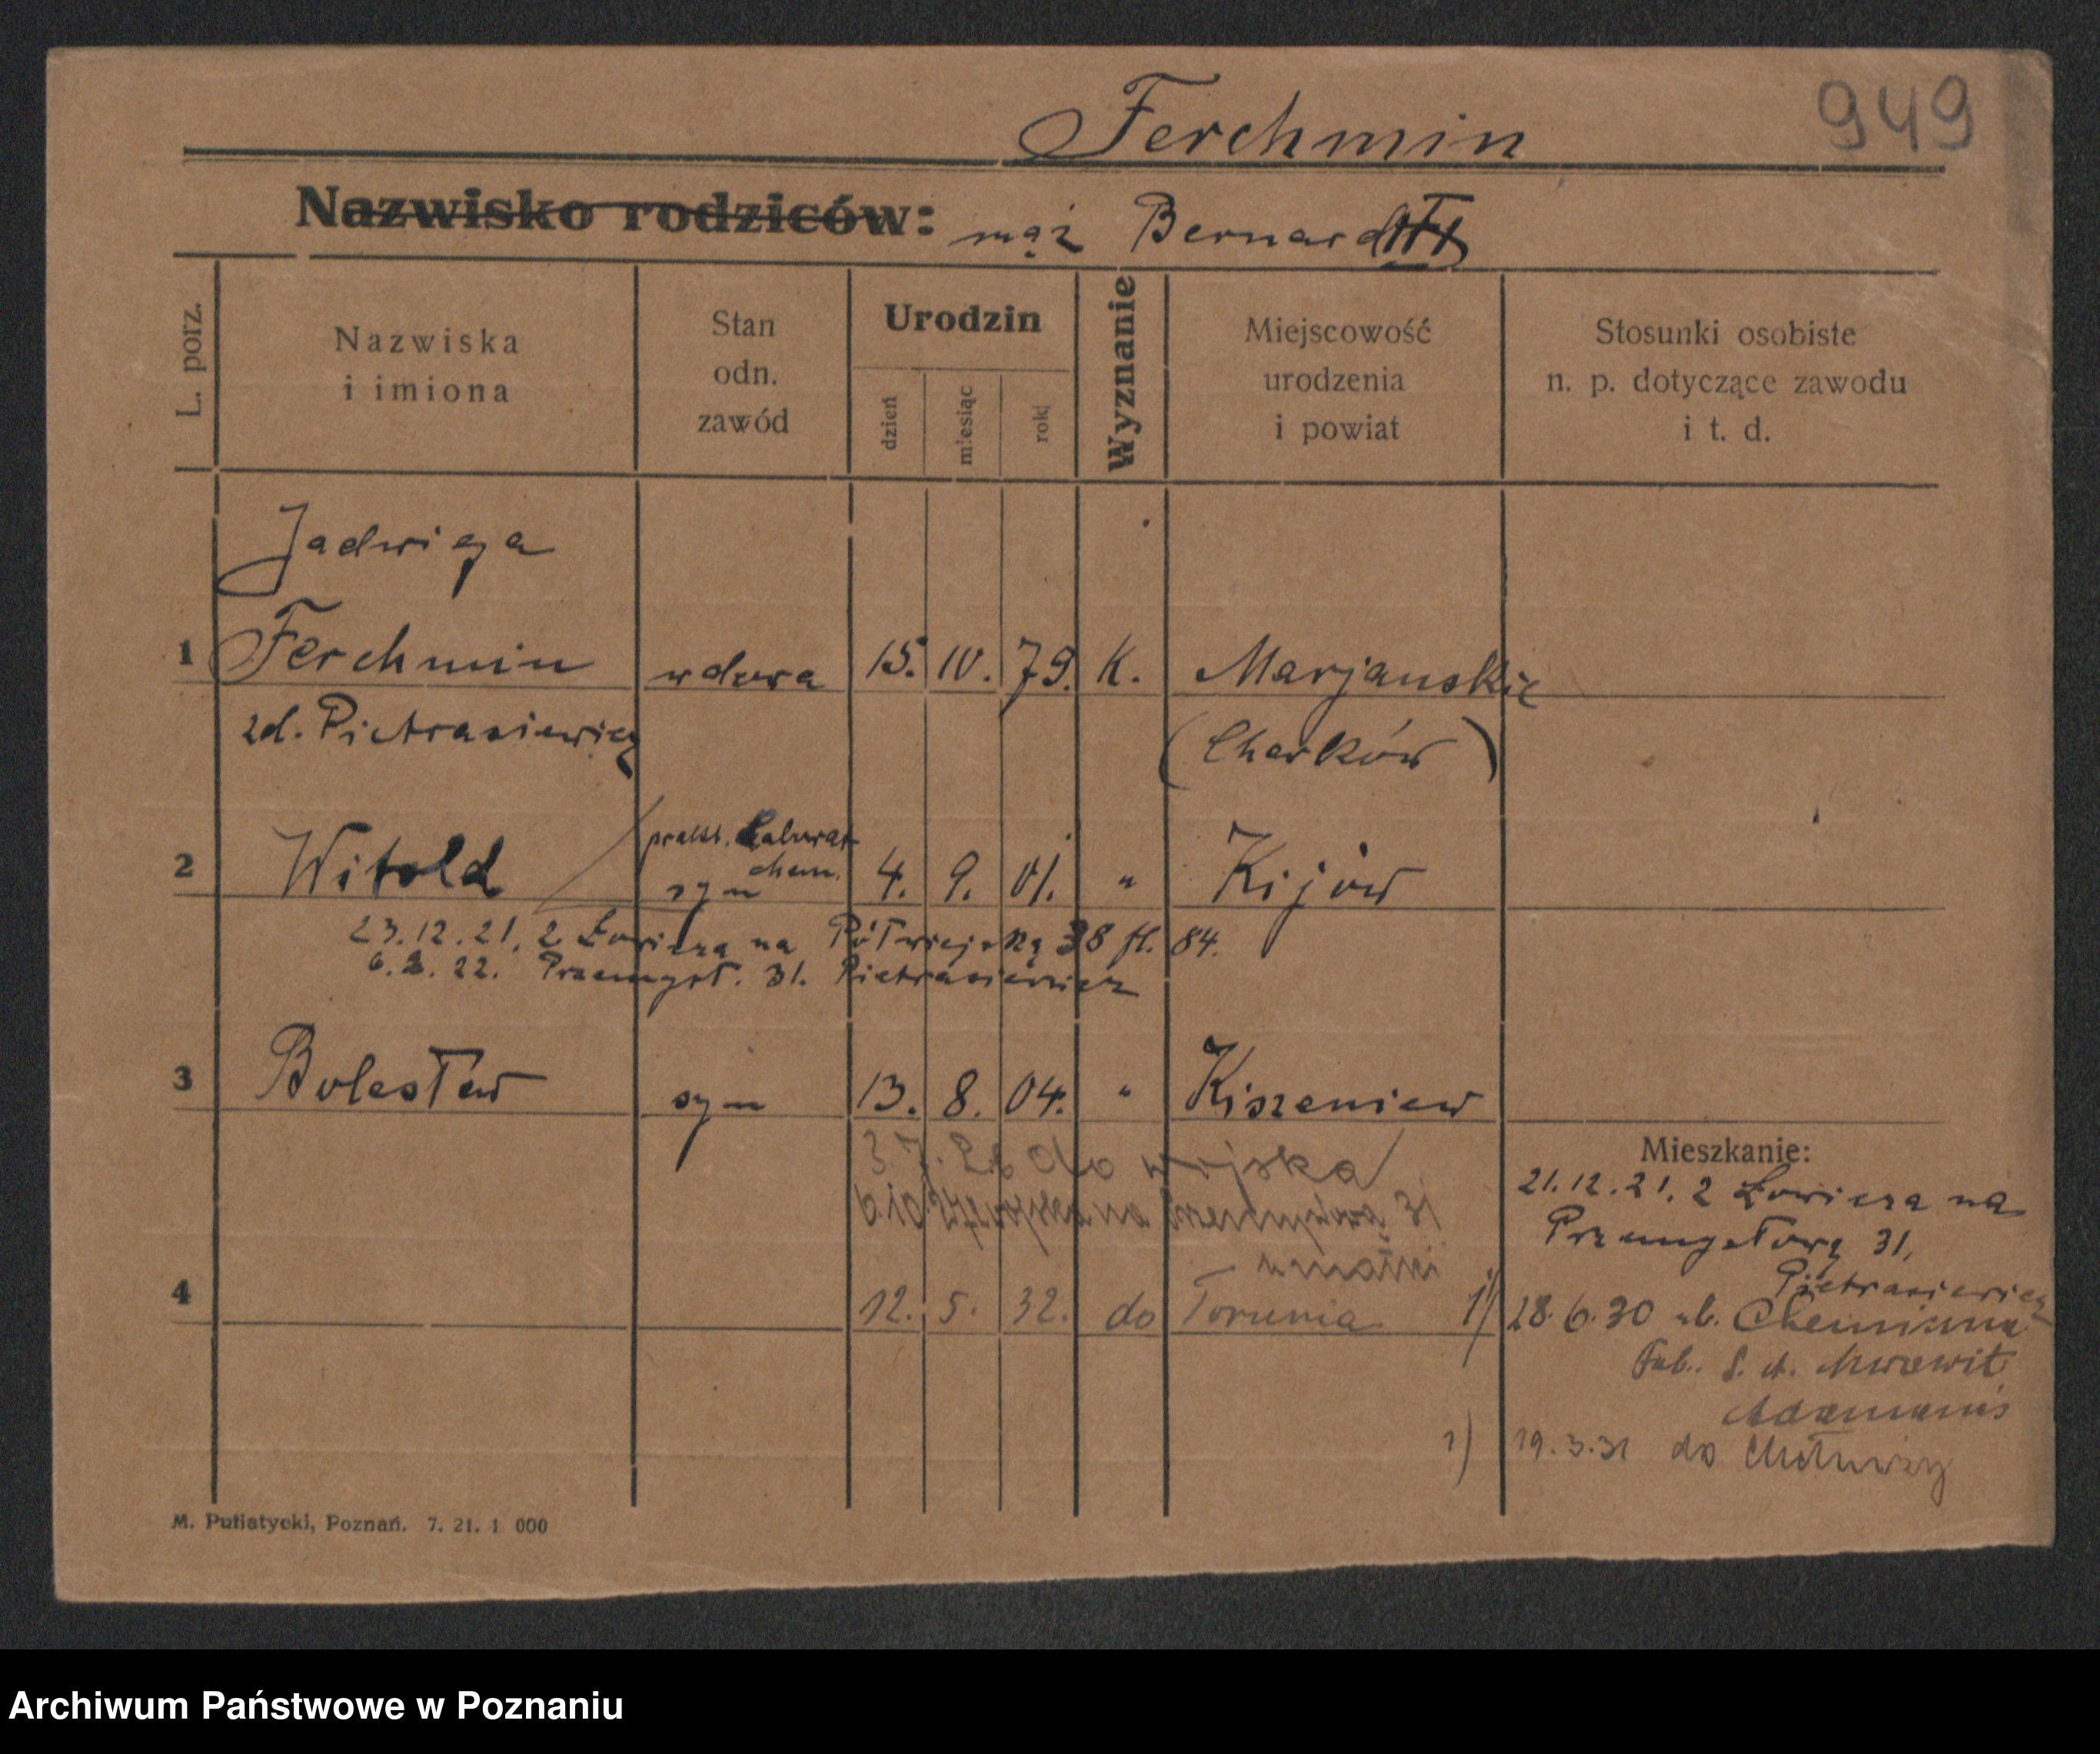 Ferchmin 949
Nazwisko rodziców: mąż Bernard
L. porz.
Nazwiska
i imiona
Stan
odn.
zawód
Urodzin
dzień
miesiąc
rok
Wyznanie
Miejscowość
urodzenia
i powiat
Stosunki osobiste
n. p. dotyczące zawodu
i t. d.
Jadwiga
1 Ferchmin wdowa 15. IV. 79. K. Marjanskie
zd. Pietrasiewicz (Charków)
prakt. Laborat
chem.
2 Witold syn 4. 9. 01. " Kijów
23.12.21. z Łowicza na Półwiejską 38 fl. 84.
6.2.22. Przemysł. 31. Pietrasiewicz
3 Bolesław syn 13. 8. 04. " Kiszeniew
do wojska
6.10. na Przemysłową 31
u matki
4 12. 5. 32. do Torunia
Mieszkanie:
21.12.21. z Łowicza na
Przemysłową 31,
Pietrasiewicz
1) 28.6.30 ub.
Fab.
1) 19.3.31 do
M. Putiatycki, Poznań. 7. 21. 1 000
Archiwum Państwowe w Poznaniu